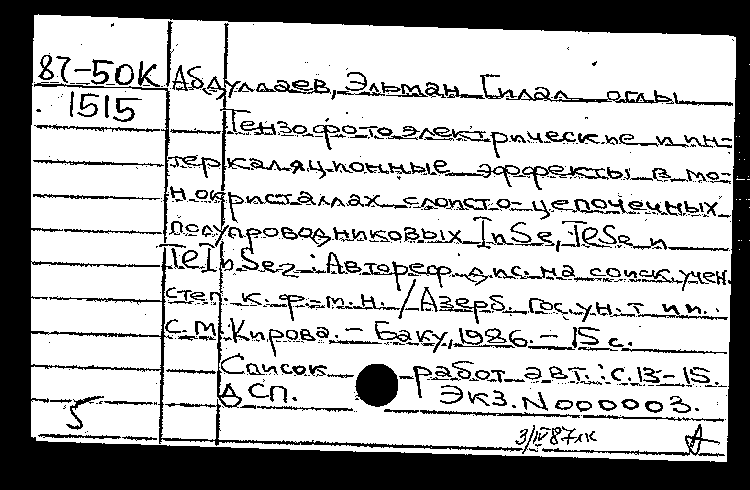 87-50К Абдуллаев, Эльман Гилал оглы
1515
Тензофотоэлектрические и ин=
теркаляционные эффекты в мо=
нокристаллах слоисто-цепочечных
полупроводниковых InSe, TeSe и
TeInSe2 : Автореф. дис. на соиск. учен.
степ. к. ф-м. н. / Азерб. гос. ун. т им.
С.М. Кирова. - Баку, 1986. - 15 с.
Список работ авт.: с. 13-15.
ДСП. Экз. N 000003.
5
3/IV 87 лк